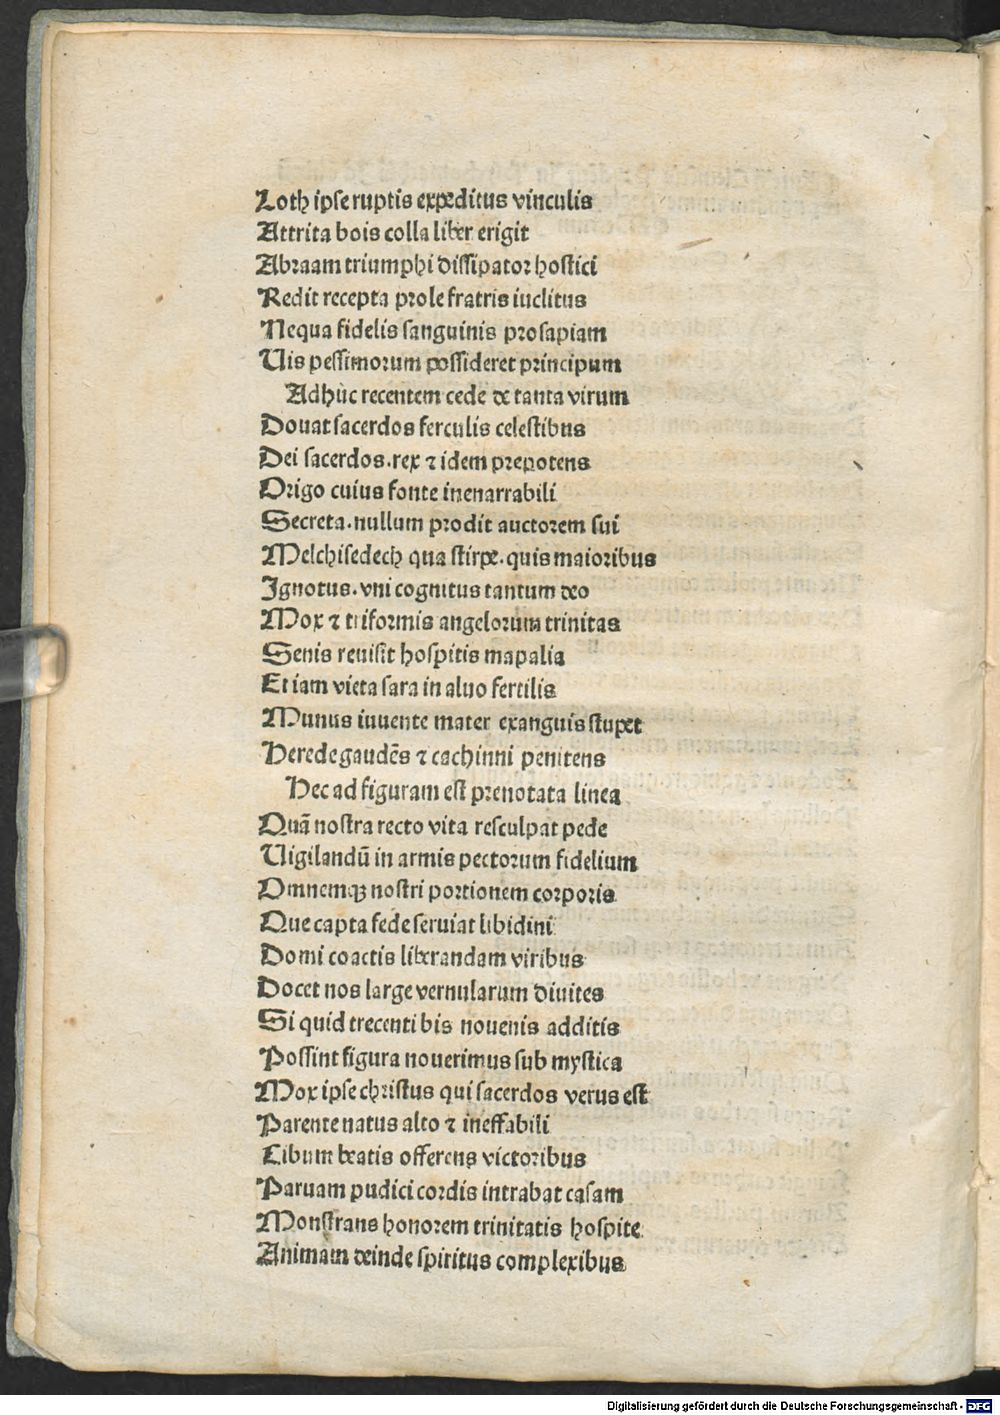 Loth ipse ruptis expeditus vinculis
Attrita bois colla liber erigit
Abraam triumphi dissipator hostici
Redit recepta prole fratris iuclitus
Nequa fidelis sanguinis prosapiam
Uis pessimorum possideret principum
Adhuc recentem cede de tanta virum
Douat sacerdos ferculis celestibus
Dei sacerdos.rex ⁊ idem prepotens
Origo cuius fonte inenarrabili
Secreta.nullum prodit auctorem sui
Melchisedech qua stirpe.quis maioribus
Ignotus.vni cognitus tantum deo
Mox ⁊ triformis angelorum trinitas
Senis reuisit hospitis mapalia
Et iam vieta sara in aluo fertilis
Munus iuuente mater exanguis stupet
Herede gaudēs ⁊ cachinni penitens
Hec ad figuram est prenotata linea
Quā nostra recto vita resculpat pede
Uigilandū in armis pectorum fidelium
Omnemqꝫ nostri portionem corporis
Que capta fede seruiat libidini
Domi coactis liberandam viribus
Docet nos large vernularum diuites
Si quid trecenti bis nouenis additis
Possint figura nouerimus sub mystica
Mox ipse christus qui sacerdos verus est
Parente natus alto ⁊ ineffabili
Cibum beatis offerens victoribus
Paruam pudici cordis intrabat casam
Monstrans honorem trinitatis hospite
Animam deinde spiritus complexibus
Digitalisierung gefördert durch die Deutsche Forschungsgemeinschaft - DFG